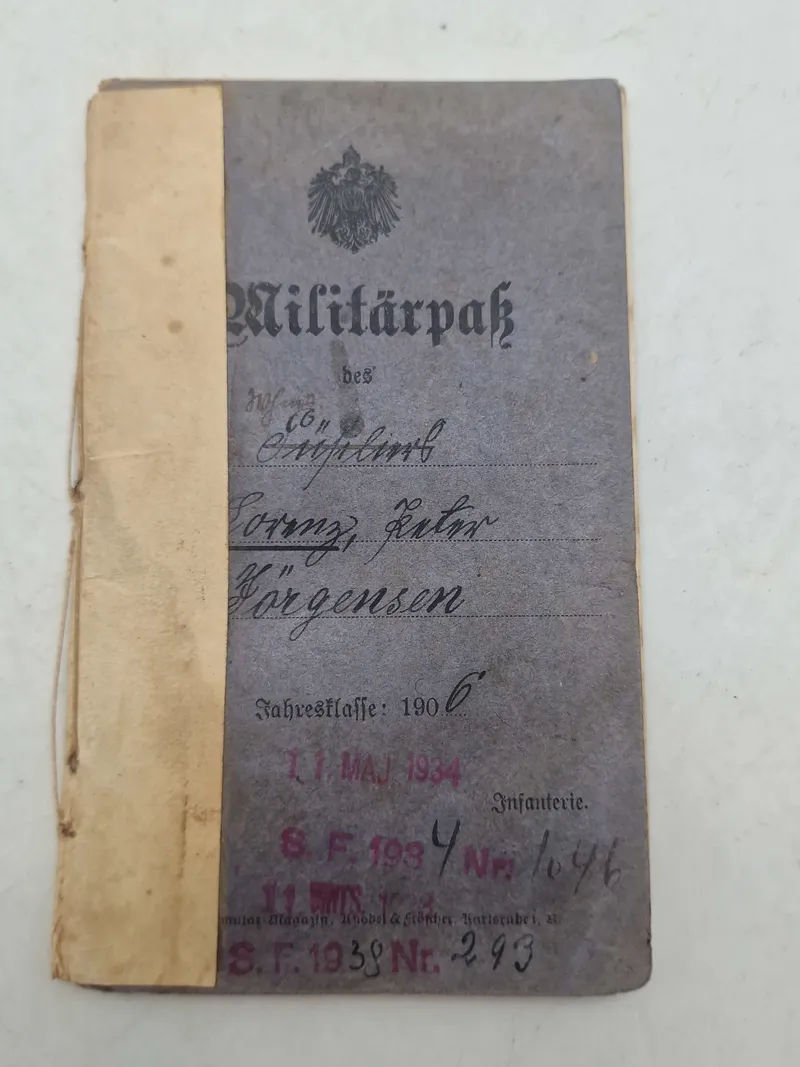 Militärpaß
des
Füsiliers
Lorenz, Peter
Jörgensen
Jahresklasse: 1906
11. MAJ 1934
Infanterie.
S. F. 1934 Nr. 1046
11
Magazin, Knodel & Karlsruhe i. B
S. F. 1938 Nr. 293